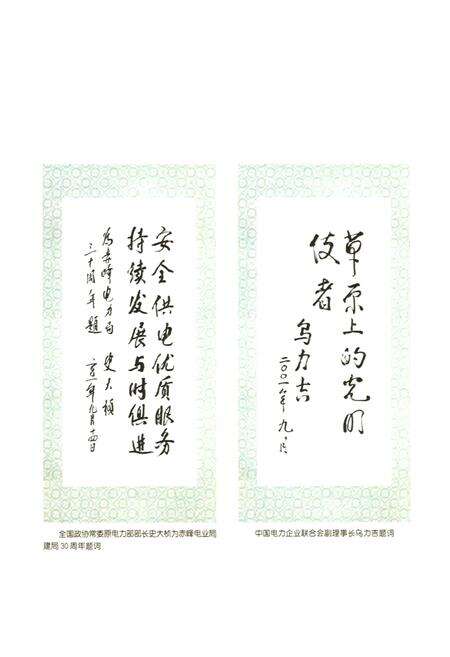 安全供电优质服务
持续发展与时俱进
为赤峰电力局
三十周年题
史大桢
二〇〇一年九月十四日
草原上的光明
使者
乌力吉
二〇〇一年九月
全国政协常委原电力部部长史大桢为赤峰电业局
建局30周年题词
中国电力企业联合会副理事长乌力吉题词